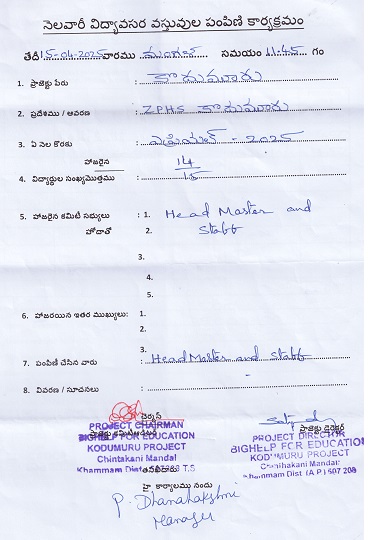 నెలవారీ విద్యావసర వస్తువుల పంపిణి కార్యక్రమం
తేదీ 15-04-2025 వారము మంగళ సమయం 11-45 గం
1. ప్రాజెక్టు పేరు : కొదుమూరు
2. ప్రదేశము / ఆవరణ : ZPHS కొదుమూరు
3. ఏ నెల కొరకు : ఏప్రియల్ - 2025
హాజరైన 14
4. విద్యార్థుల సంఖ్యమొత్తము : 15
5. హాజరైన కమిటీ సభ్యులు : 1. Head Master and
హోదాతో 2. Staff
3.
4.
5.
6. హాజరయిన ఇతర ముఖ్యులు: 1.
2.
3.
7. పంపిణీ చేసిన వారు : Head Master and Staff
8. వివరణ / సూచనలు :
చైర్మన్
PROJECT CHAIRMAN
BIGHELP FOR EDUCATION
KODUMURU PROJECT
Chintakani Mandal
Khammam Dist T.S
ప్రాజెక్టు డైరెక్టర్
PROJECT DIRECTOR
BIGHELP FOR EDUCATION
KODUMURU PROJECT
Chinthakani Mandal
Khammam Dist (A P) 507 208
హై కార్యాలము నందు
P. Dhanalakshmi
Manager